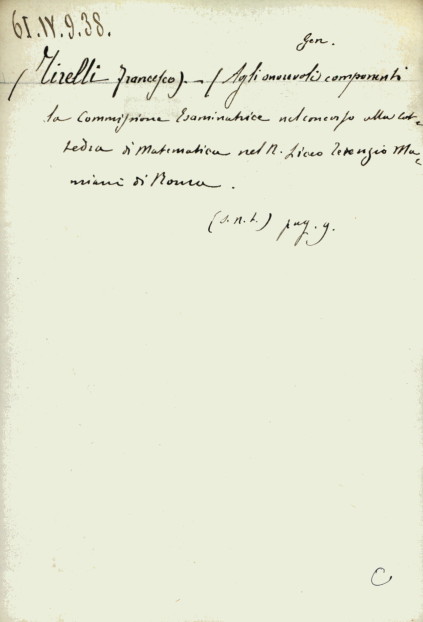 61.IV.9.38.
Gen.
(Tirelli Francesco). – (Agli onorevoli componenti
la Commissione Esaminatrice nel concorso alla Cat-
tedra di Matematica nel R. Liceo Terenzio Ma-
miani di Roma.
(s.n.t.) pag. 9.
C